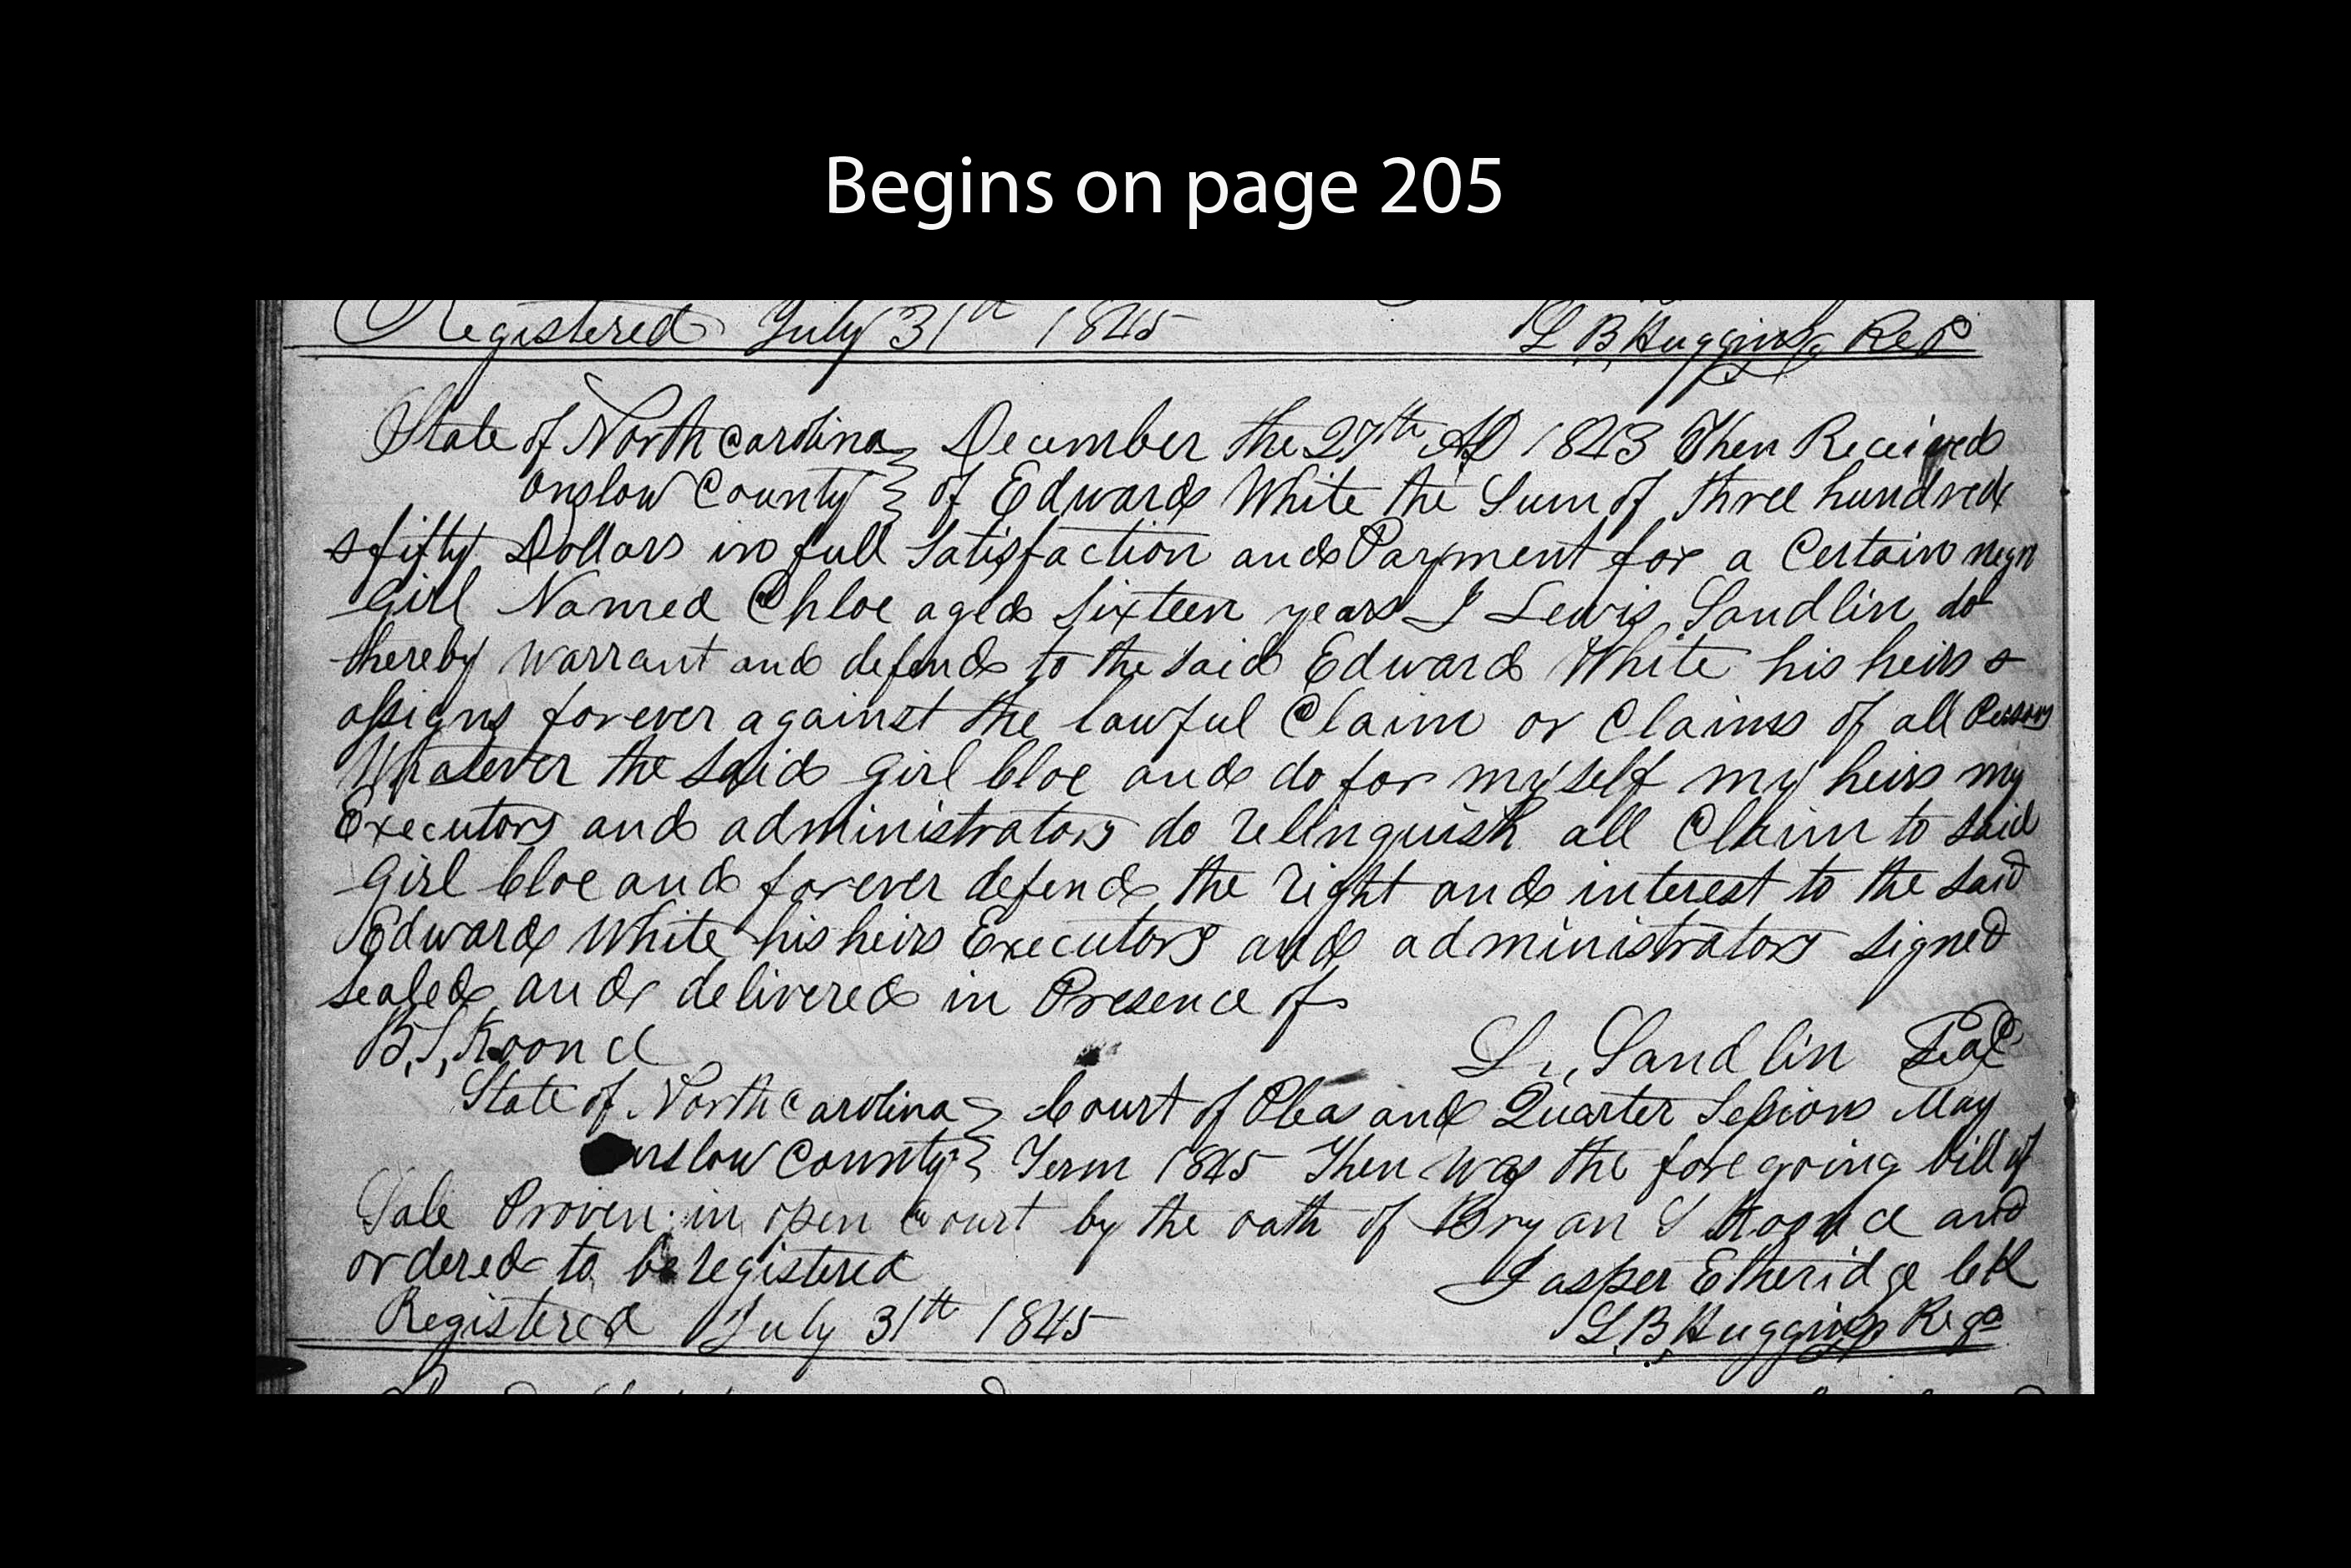 Begins on page 205
Registered July 31th 1845 L B, Huggins Reg
State of North Carolina December the 27th AD 1843 Then Received
Onslow County of Edward White the Sum of three hundred
& fifty Dollars in full Satisfaction and Payment for a Certain negro
Girl Named Chloe aged Sixteen years I Lewis Sandlin do
thereby Warrant and defend to the said Edward White his heirs &
assigns forever against the lawful Claim or Claims of all Persons
Whatever the said girl Cloe and do for myself my heirs my
Executors and administrators do relinquish all Claim to said
Girl Cloe and forever defend the right and interest to the said
Edward White his heirs Executors and administrators signed
sealed and delivered in Presence of
B, S, Koonce L., Sandlin Seal
State of North Carolina Court of Pleas and Quarter Session May
Onslow County Term 1845 Then was the foregoing bill of
Sale Proven in open Court by the oath of Bryan S Koonce and
ordered to be registered Jasper Etheridge Clk
Registered July 31th 1845 L, B, Huggins Reg